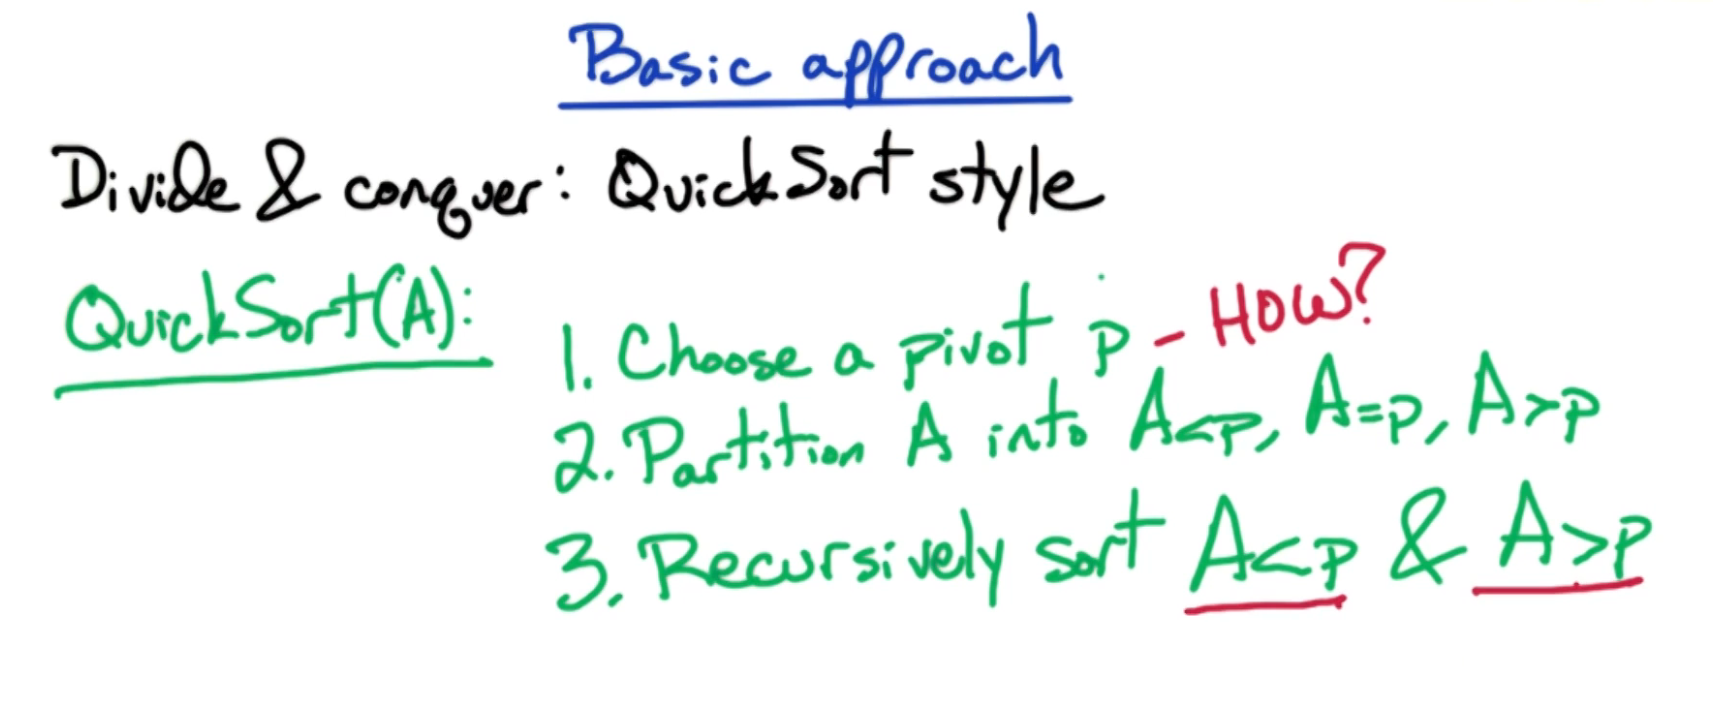 Basic approach
Divide & conquer: QuickSort style
QuickSort(A):
1. Choose a pivot p - How?
2. Partition A into A<p, A=p, A>p
3. Recursively sort A<p & A>p